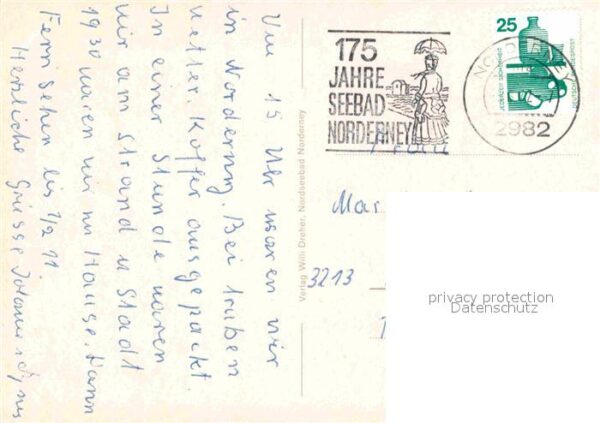 Um 15 Uhr waren wir
in Norderney. Bei trüben
Wetter. Koffer ausgepackt
In einer Stunde waren
wir am Strand u Stadt
1930 waren wir im Hause. Dann
Fernsehen bis 1/2 11
Herzliche Grüsse
Verlag Willi Dreher, Nordseebad Norderney
175
JAHRE
SEEBAD
NORDERNEY
25
NORDERNEY
2982
JEDERZEIT SICHERHEIT
DEUTSCHE BUNDESPOST
Mar
3213
privacy protection
Datenschutz